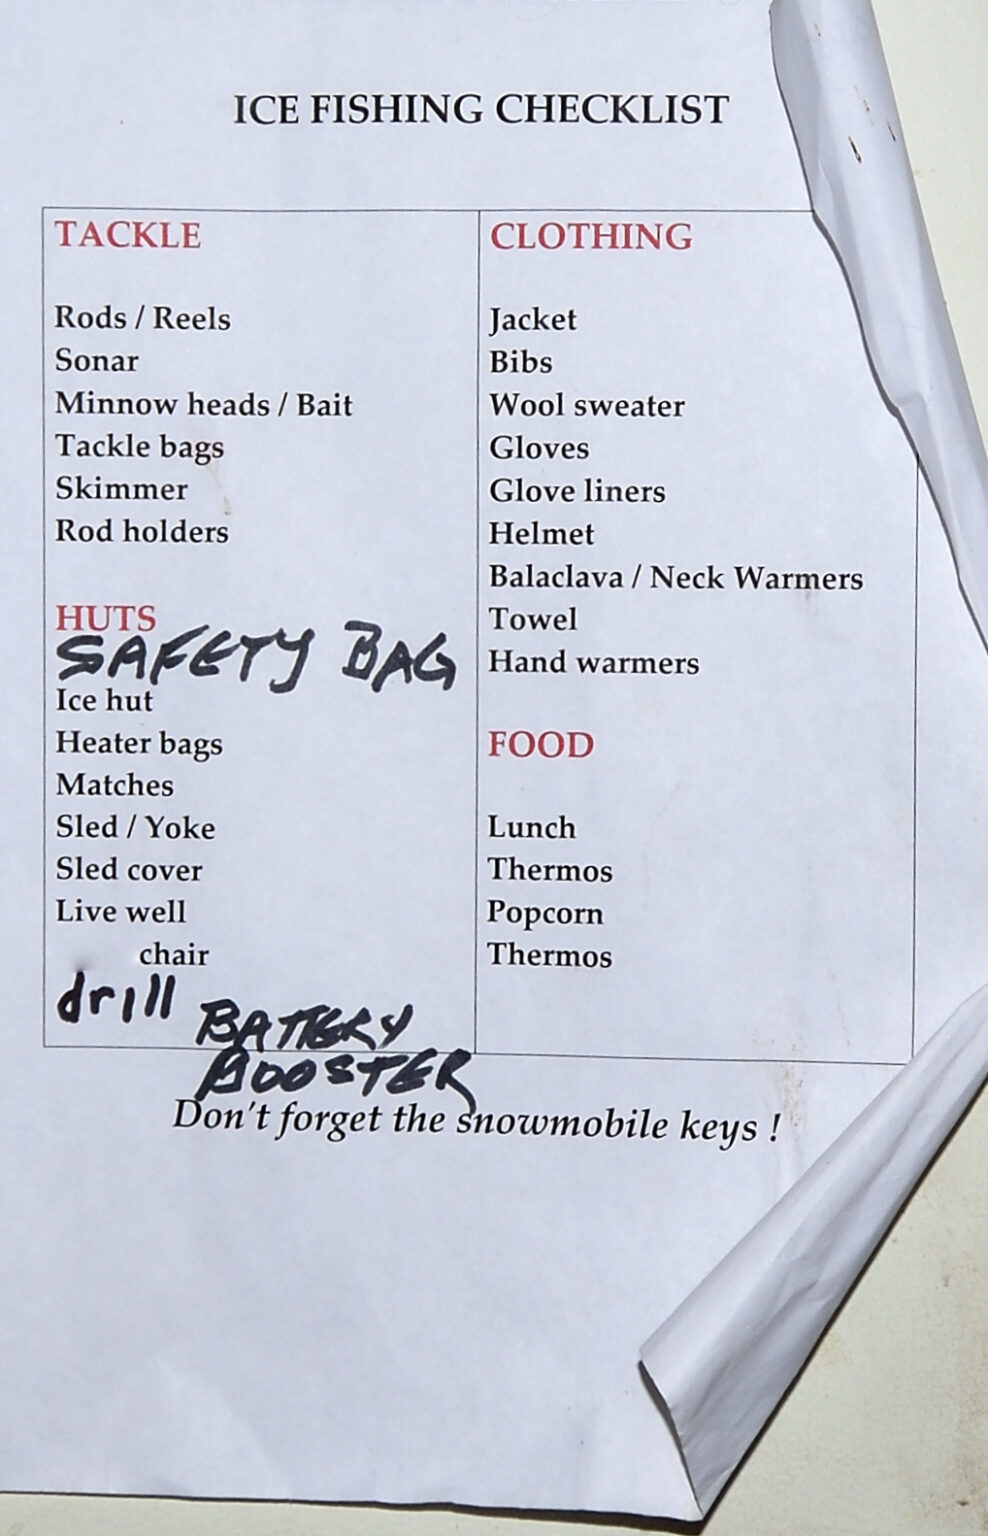 ICE FISHING CHECKLIST
TACKLE
Rods / Reels
Sonar
Minnow heads / Bait
Tackle bags
Skimmer
Rod holders
HUTS
SAFETY BAG
Ice hut
Heater bags
Matches
Sled / Yoke
Sled cover
Live well
chair
drill
BATTERY
BOOSTER
CLOTHING
Jacket
Bibs
Wool sweater
Gloves
Glove liners
Helmet
Balaclava / Neck Warmers
Towel
Hand warmers
FOOD
Lunch
Thermos
Popcorn
Thermos
Don't forget the snowmobile keys !